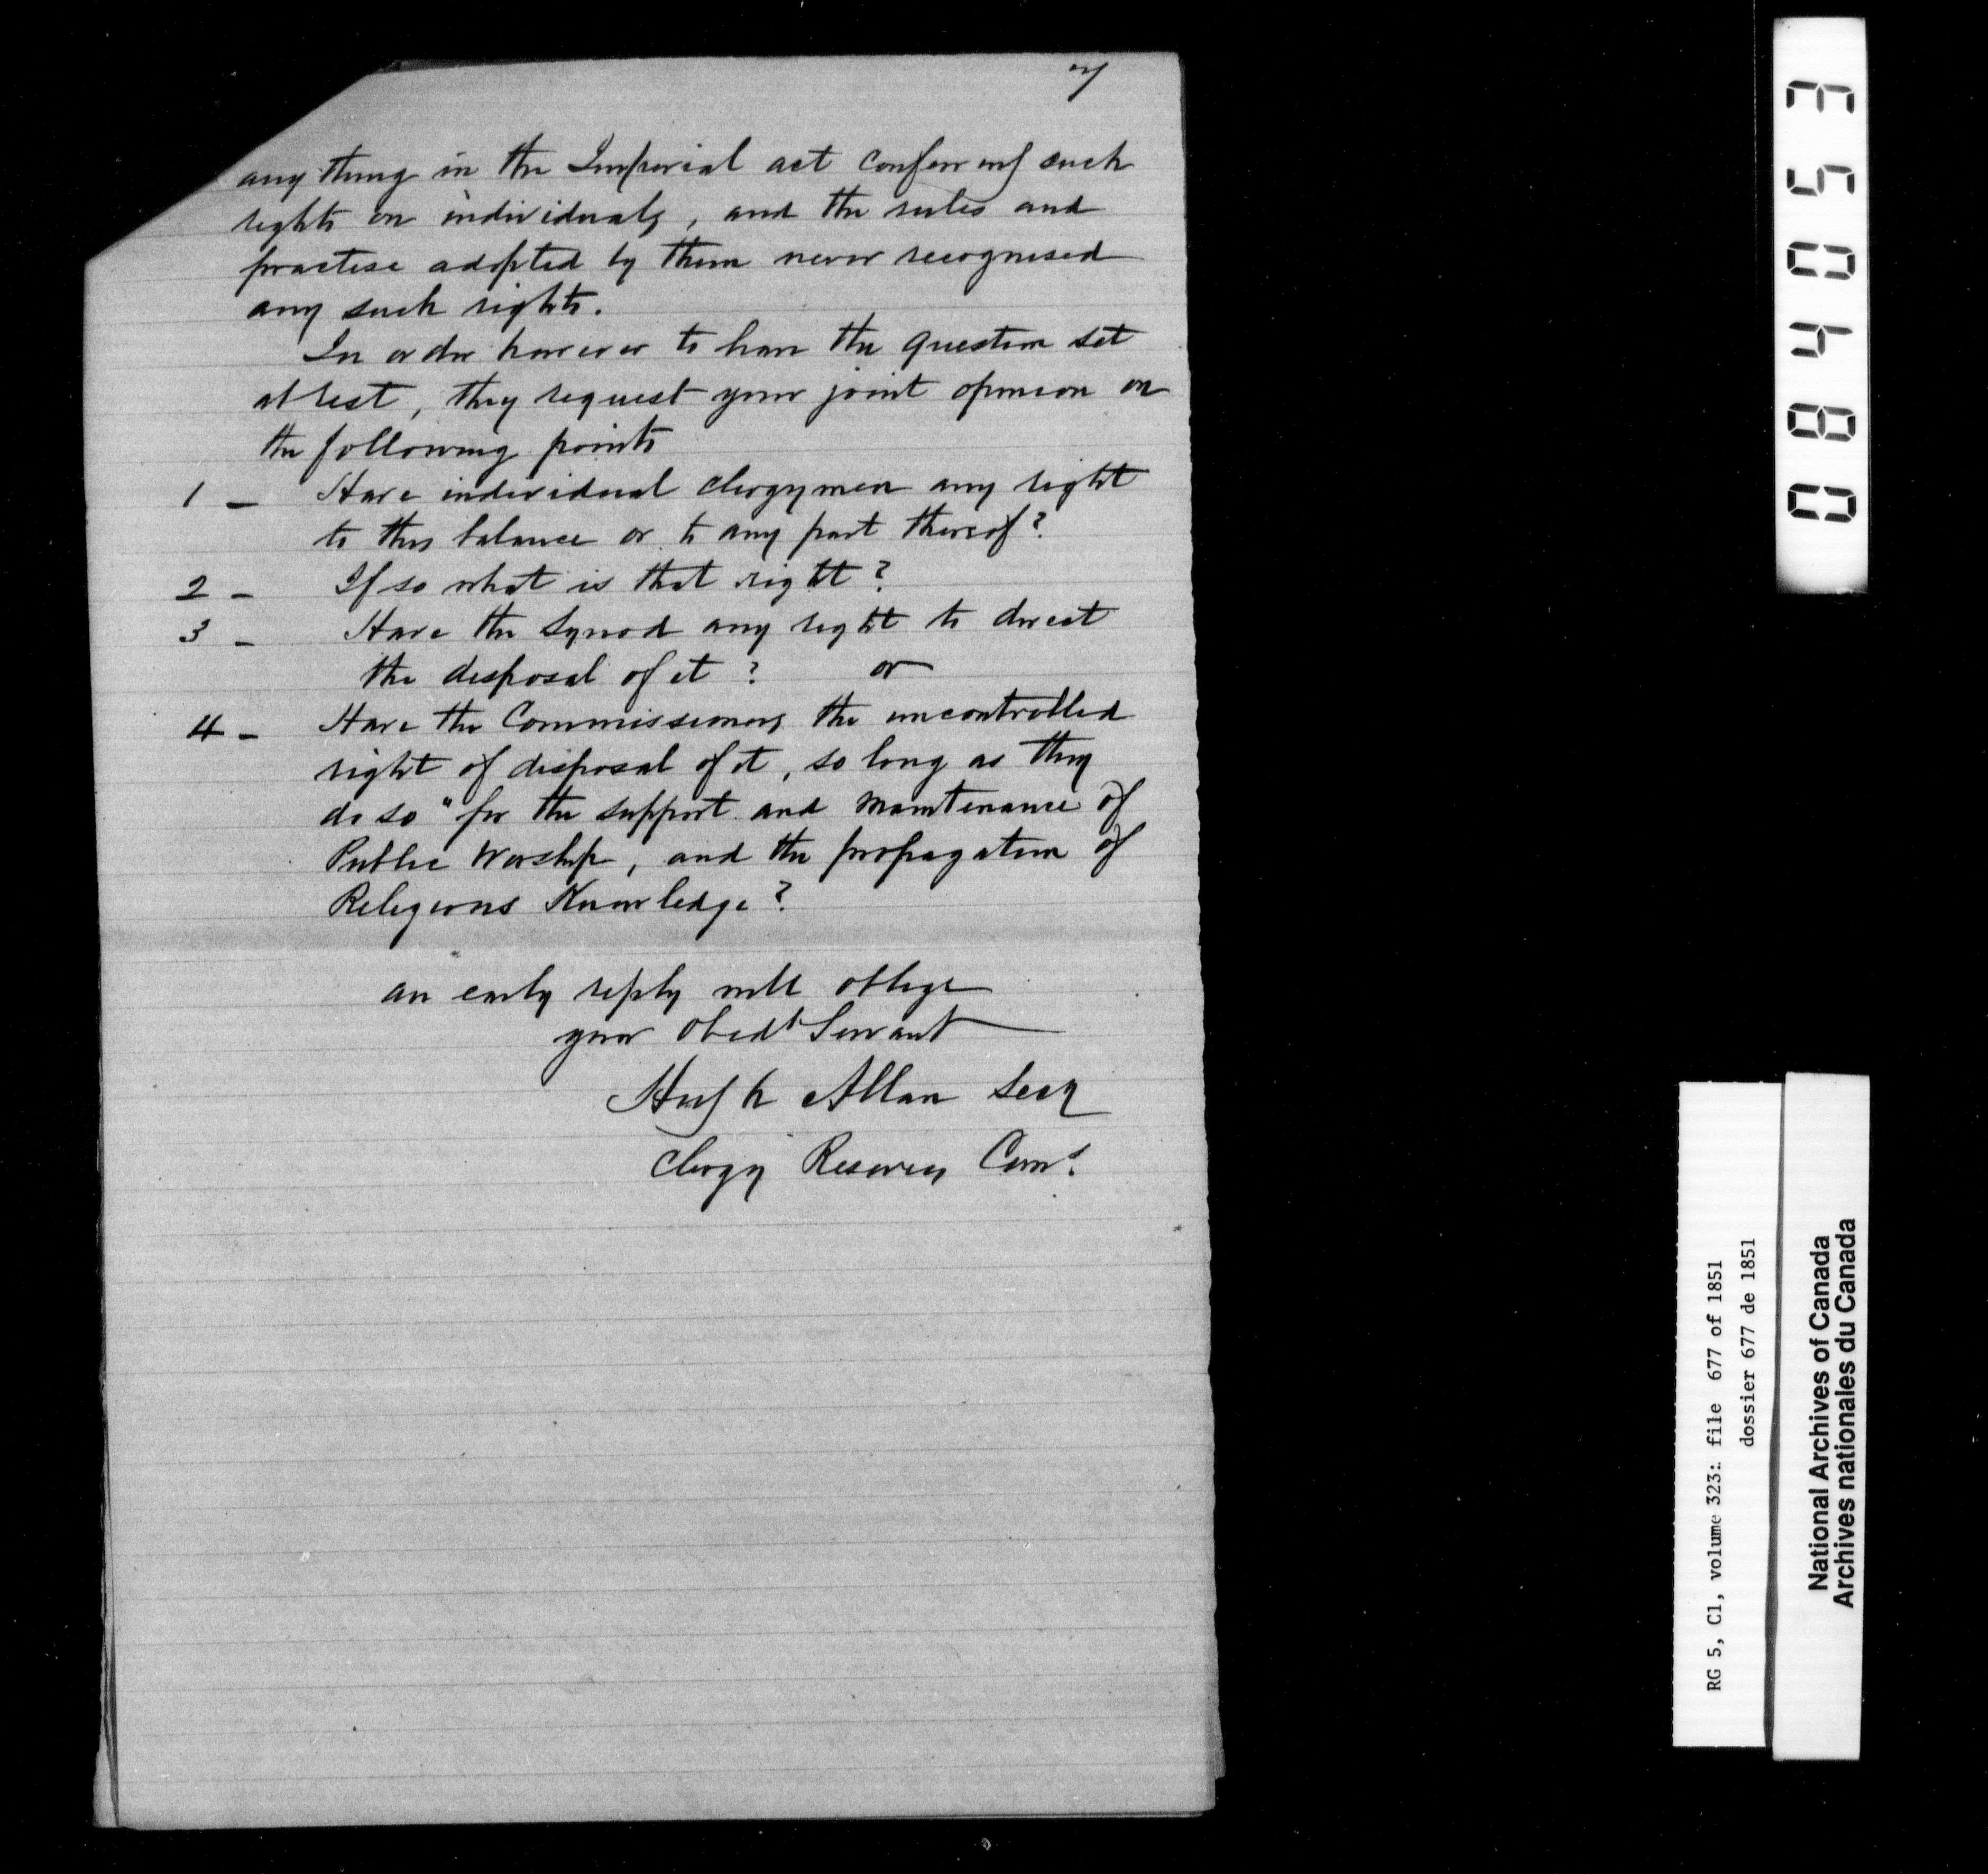 7
any thing in the Imperial act conferring such
rights on individuals, and the rules and
practise adopted by them never recognised
any such rights.
In order however to have the question set
at rest, they request your joint opinion on
the following points
1 - Have individual Clergymen any right
to this balance or to any part thereof?
2 - If so what is that right?
3 - Have the Synod any right to direct
the disposal of it? or
4 - Have the Commissioners the uncontrolled
right of disposal of it, so long as they
do so "for the support and maintenance of
Public Worship, and the propagation of
Religious Knowledge?
an early reply will oblige
your Obedt Servant
Hugh Allan Secy
Clergy Reserves Coms.
084053
RG 5, C1, volume 323: file 677 of 1851
dossier 677 de 1851
National Archives of Canada
Archives nationales du Canada